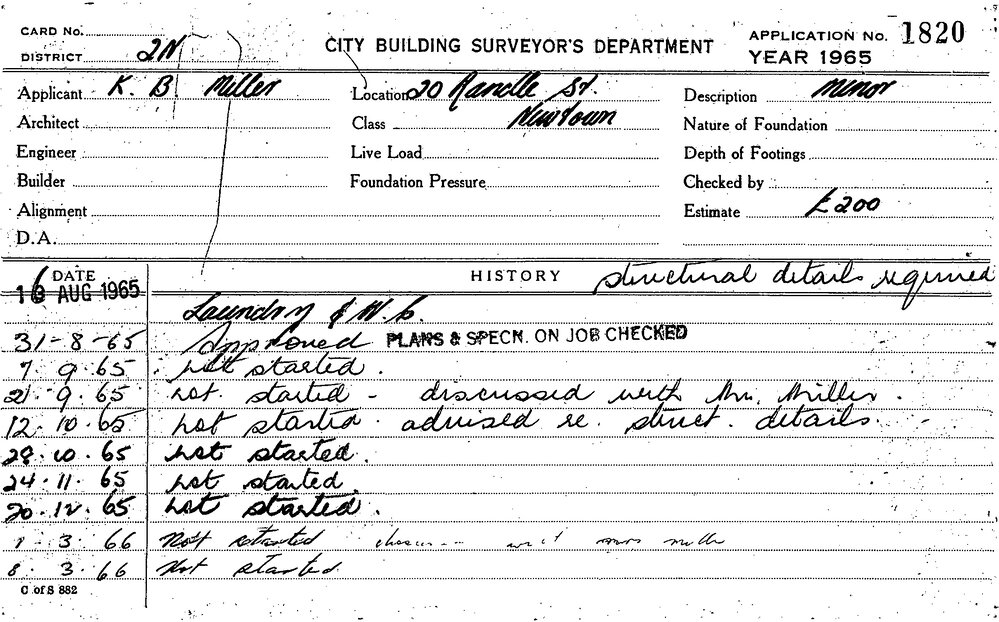 CARD No.
DISTRICT 2N
CITY BUILDING SURVEYOR'S DEPARTMENT
APPLICATION No. 1820
YEAR 1965
Applicant K. B. Miller
Location 20 Randle St.
Description Minor
Architect
Class Newtown
Nature of Foundation
Engineer
Live Load
Depth of Footings
Builder
Foundation Pressure
Checked by
Alignment
Estimate £200
D.A.
DATE HISTORY structural details required
16 AUG 1965
Laundry & W.C.
31-8-65 Approved PLANS & SPECN. ON JOB CHECKED
7.9.65 not started.
21.9.65 not started - discussed with Mr. Miller.
12.10.65 not started. advised re. struct. details.
28.10.65 not started.
24.11.65 not started.
20.12.65 not started.
1.3.66 Not started
8.3.66 Not started.
C of S 882